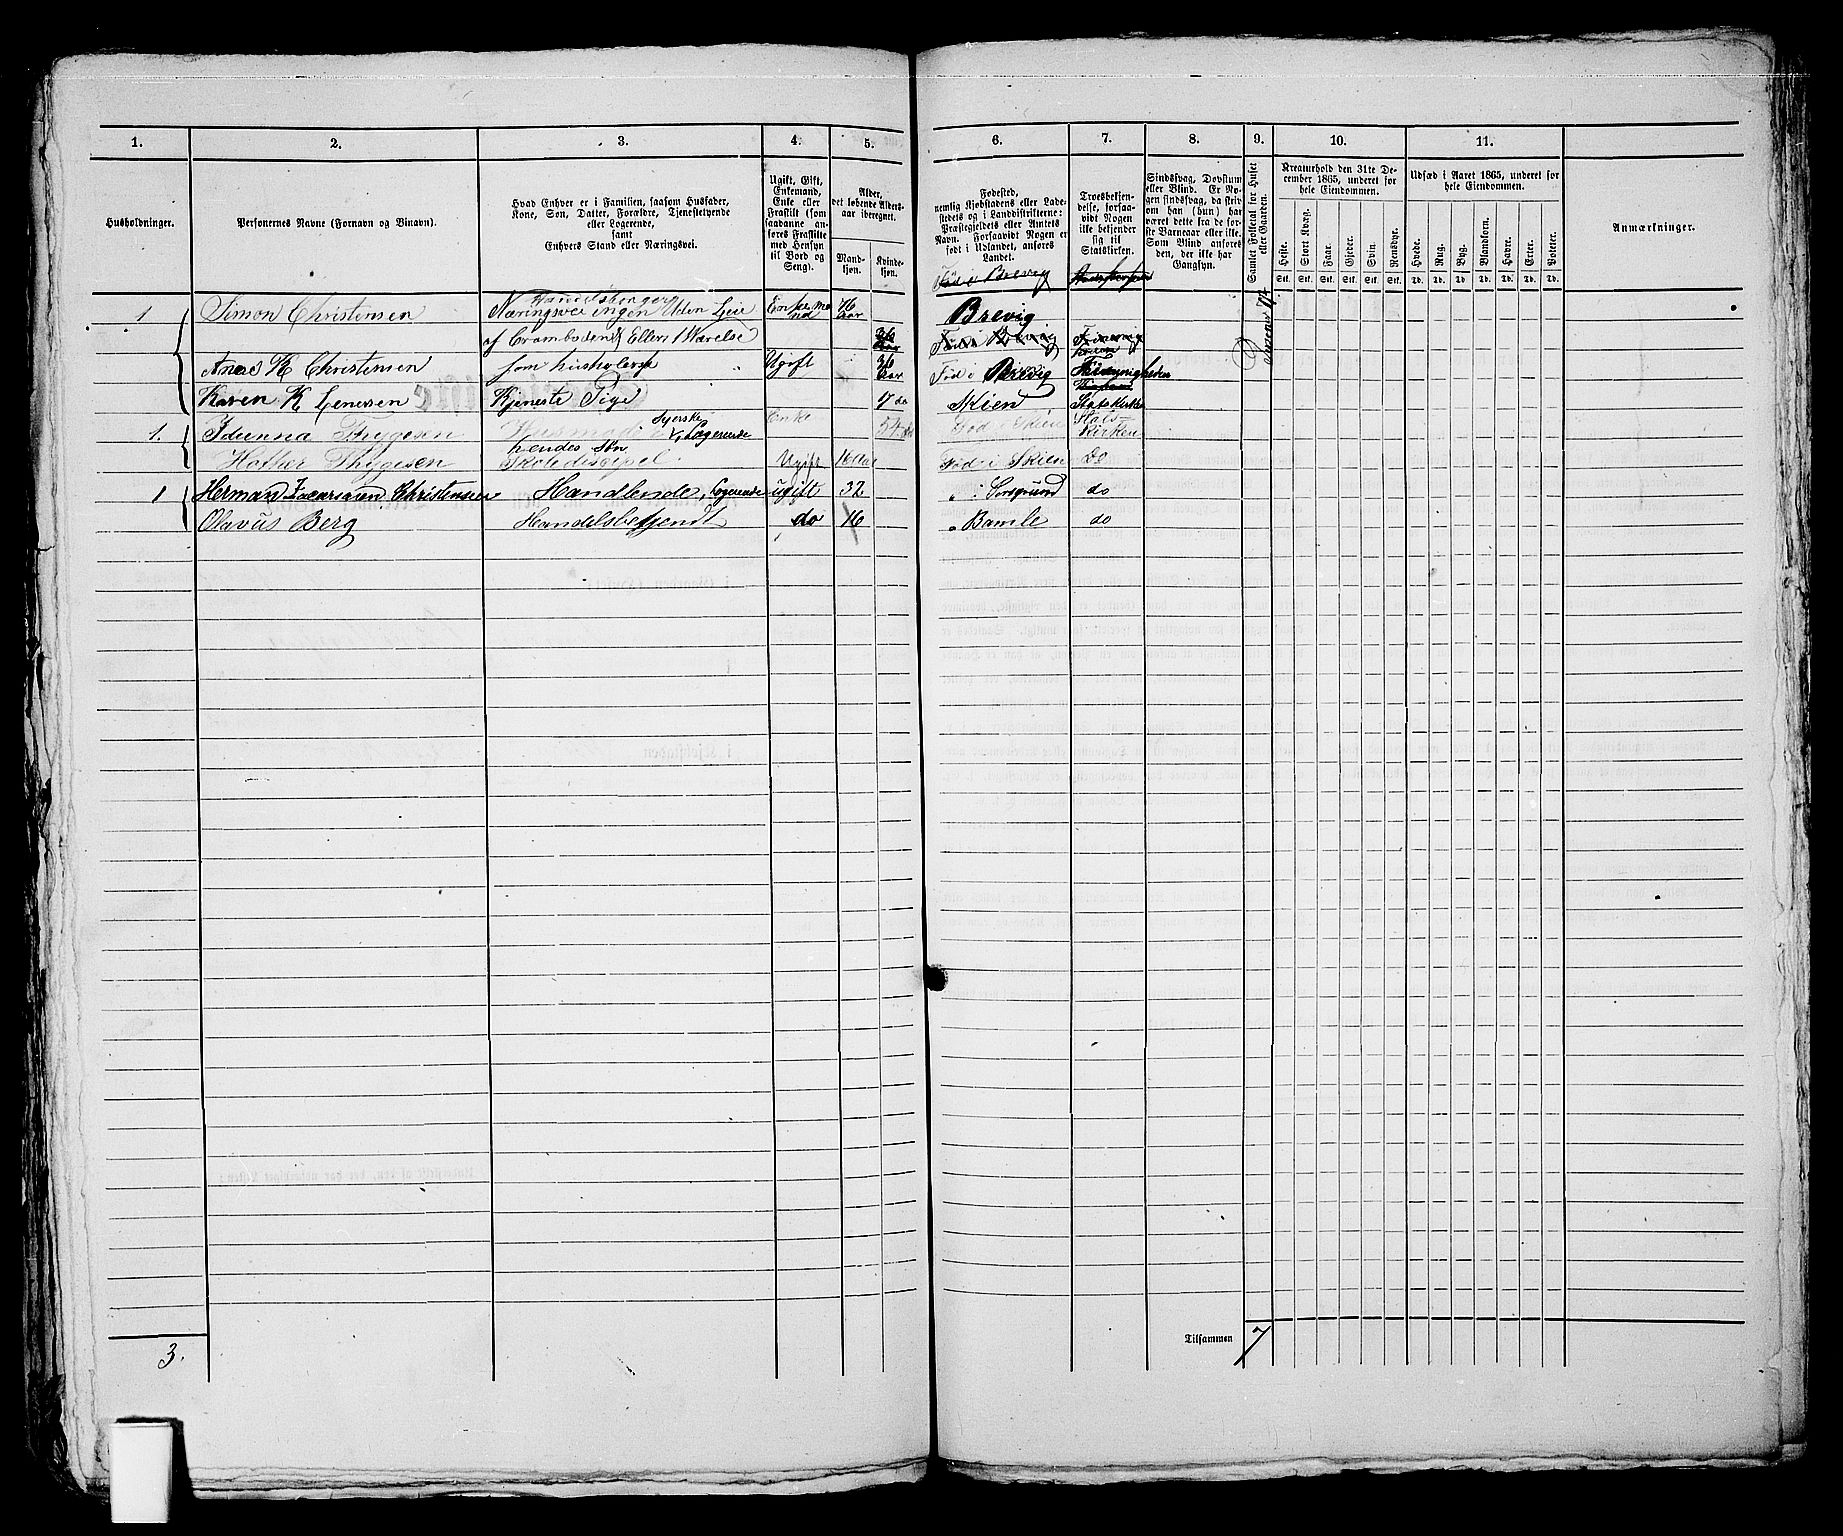 1. 2. 3. 4. 5. 6. 7. 8. 9. 10. 11.
Husholdninger.
Personernes Navne (Fornavn og Binavn).
Hvad Enhver er i Familien, saasom Husfader,
Kone, Søn, Datter, Forældre, Tjenestetyende
eller Logerende,
samt
Enhvers Stand eller Næringsvei.
Ugift, Gift,
Enkemand,
Enke eller
Fraskilt (som
saadanne an-
føres Fraskilte
med Hensyn
til Bord og
Seng).
Alder,
det løbende Alders-
aar iberegnet.
Mand-
kjøn.
Kvinde-
kjøn.
Fødested,
nemlig Kjøbstadens eller Lade-
stedets og i Landdistrikterne:
Præstegjeldets eller Amtets
Navn. Forsaavidt Nogen er
født i Udlandet, anføres
Landet.
Troesbekjen-
delse, forsaa-
vidt Nogen
ikke bekjender
sig til
Statskirken.
Sindssvag, Døvstum
eller Blind. Er No-
gen sindssvag, da skriv
om han (hun) har
været dette fra de før-
ste Barneaar eller ikke.
Som Blind anføres
den, der ikke har
Gangsyn.
Samlet Folketal for Huset
eller Gaarden.
Kreaturhold den 31te De-
cember 1865, underet for
hele Eiendommen.
Heste. Stort Kvæg. Faar. Gjeder. Svin. Rensdyr.
Stk. Stk. Stk. Stk. Stk. Stk.
Udsæd i Aaret 1865, underet for
hele Eiendommen.
Hvede. Rug. Byg. Blandkorn. Havre. Erter. Poteter.
Td. Td. Td. Td. Td. Td. Td.
Anmærkninger.
Fød i Brevig
Handelsborger
1 Simon Christensen Næringsvei ingen Uden Leie Enkemand 76 Aar Brevig
af Cramboden Ellers 1 Værelse 36 Aar Fød i Brevig
K Christensen som husholerske Ugift 36 Aar Fød i Brevig
Karen K Jenssen Tjeneste Pige 7 do Skien Statskirken
Syerske
1. Idunna Thygesen Logerende Enke 54 Fød i Skien Stats-
kirken
hendes Søn
Hother Thygesen Skolediscipel Ugift 16 Aar Fød i Skien Do
1 Herman Christensen Handlende, Logerende ugift 32 " i Porsgrund do
Olavus Berg Handelsbetjendt do 16 " Bamle do
3.
Tilsammen 7